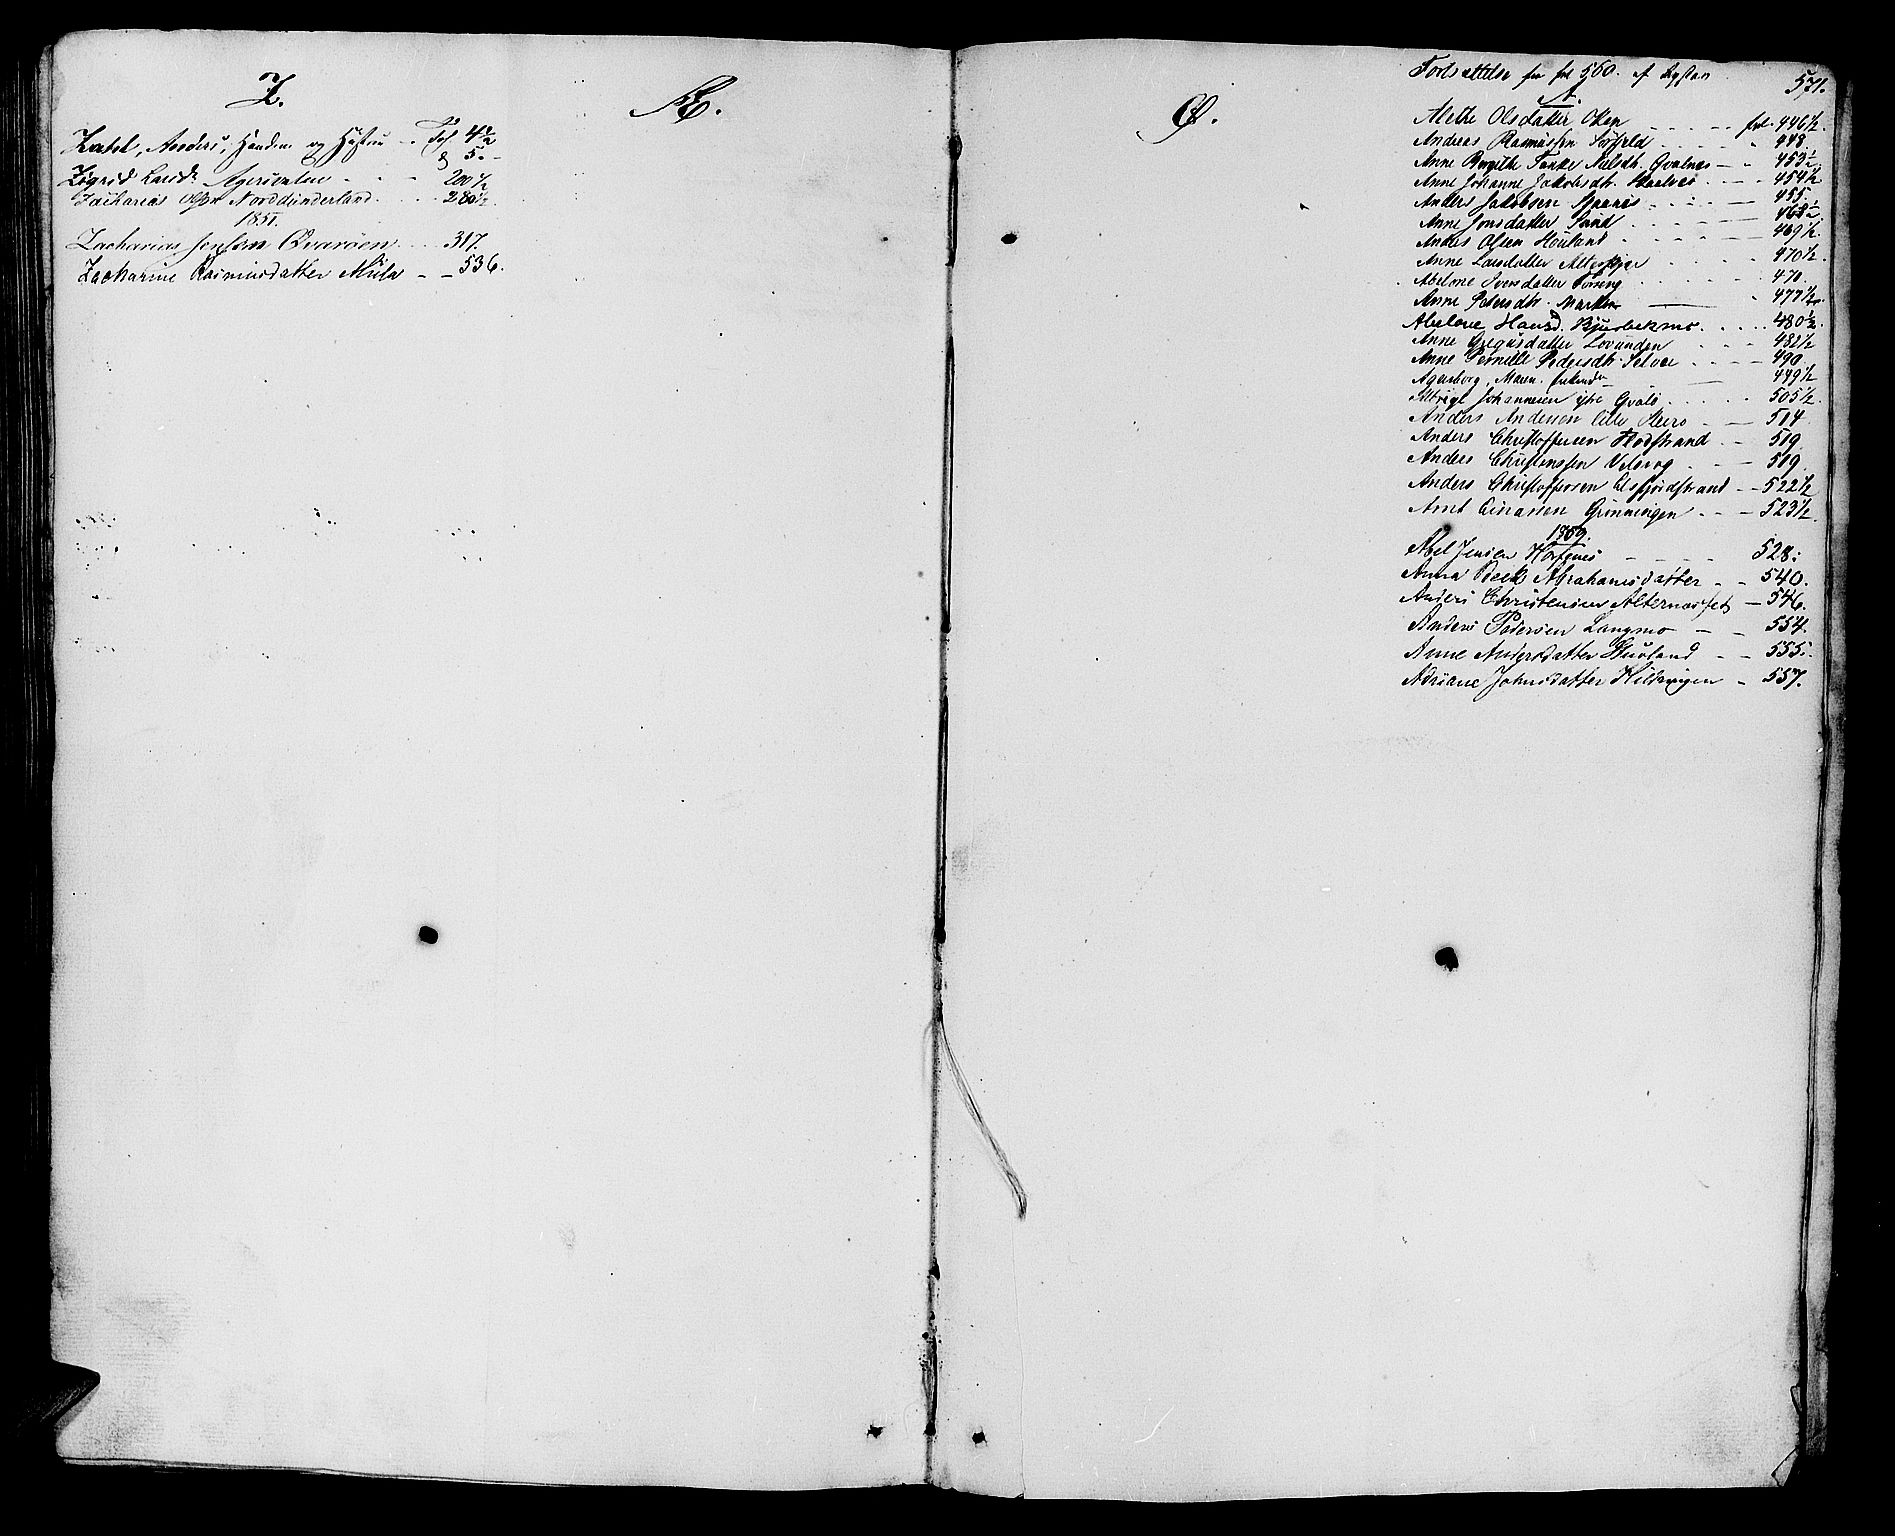 Z.
Zahl, Anders, Handm og Hustru Fol. 4 1/2
& 5.
Zigrid Larsdr Agersvatne 200 1/2
Zacharias Olsen Norddunderland 280 1/2
1851.
Zacharias Jensen Qvarøen 317.
Zacharine Rasmusdatter Mula 536.
Æ.
Ø.
Fortsættelse fra fol 560. af
571.
A.
Alethe Olsdatter Oken fol. 446 1/2.
Andreas Rasmussen 448.
Anne Birgithe Tanke Nilsdtr Qvalnes 453 1/2
Anne Johanne Jakobsdtr. 454 1/2
Anders Jakobsen 455.
Anne Jonsdatter Sund 468 1/2
Anders Olsen Houland 469 1/2.
Anne Larsdatter 470 1/2
Abelone Iversdatter Forseng 470.
Anne Petersdtr. Marken 477 1/2
Abelone Hansd. Bjerbekmo 480 1/2.
Anne Gregusdatter Lovunden 482 1/2
Anne Pernille Pedersdtr. Selvær 490.
Agersborg, Maren, 449 1/2
Albrigt Johannesen ytre Qvalø 505 1/2.
Anders Andersen 514
Anders Christoffersen 519
Anders Christensen 519.
Anders Christoffersen Elsfjordstrand 522 1/2
Arnt Einarsen Grønningen 523 1/2.
1869.
Abel Jensen 528.
Anna Beck Abrahamsdatter 540.
Anders Christensen Alternæset 546.
Anders Pedersen Langmo 554.
Anne Andersdatter 555.
Adriane Johnsdatter Hildringen 557.